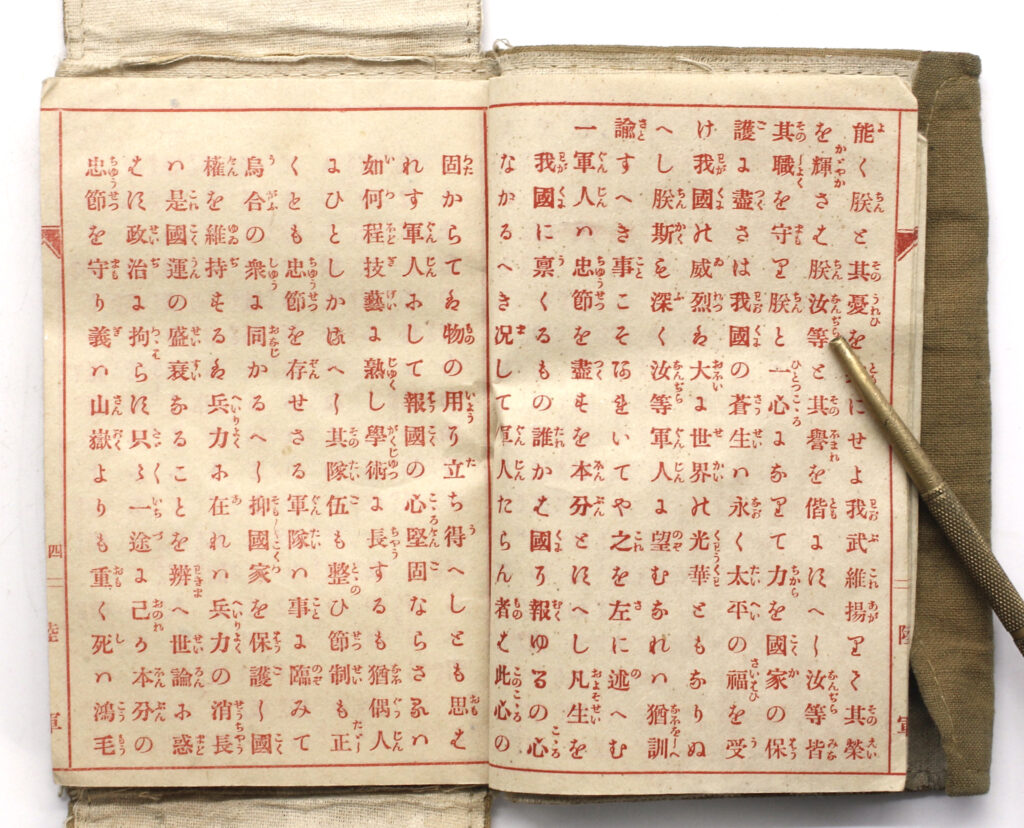 能く朕と其憂をにせよ我武維揚りて其榮
を輝さは朕汝等と其譽を偕にすへし汝等皆
其職を守り朕と一心になりて力を國家の保
護に盡さは我國の蒼生は永く太平の福を受
け我國の威烈は大に世界の光華ともなりぬ
へし朕斯も深く汝等軍人に望むなれは猶訓
諭すへき事こそあれいてや之を左に述へむ
一軍人は忠節を盡すを本分とすへし凡生を
我國に禀くるもの誰かは國に報ゆるの心
なかるへき况して軍人たらん者は此心の
固からては物の用に立ち得へしとも思は
れす軍人にして報國の心堅固ならさるは
如何程技藝に熟し學術に長するも猶偶人
にひとしかるへし其隊伍も整ひ節制も正
くとも忠節を存せさる軍隊は事に臨みて
烏合の衆に同かるへし抑國家を保護し國
權を維持するは兵力に在れは兵力の消長
は是國運の盛衰なることを辨へ世論に惑
はす政治に拘らす只々一途に己か本分の
忠節を守り義は山嶽より重く死は鴻毛
四
陸軍